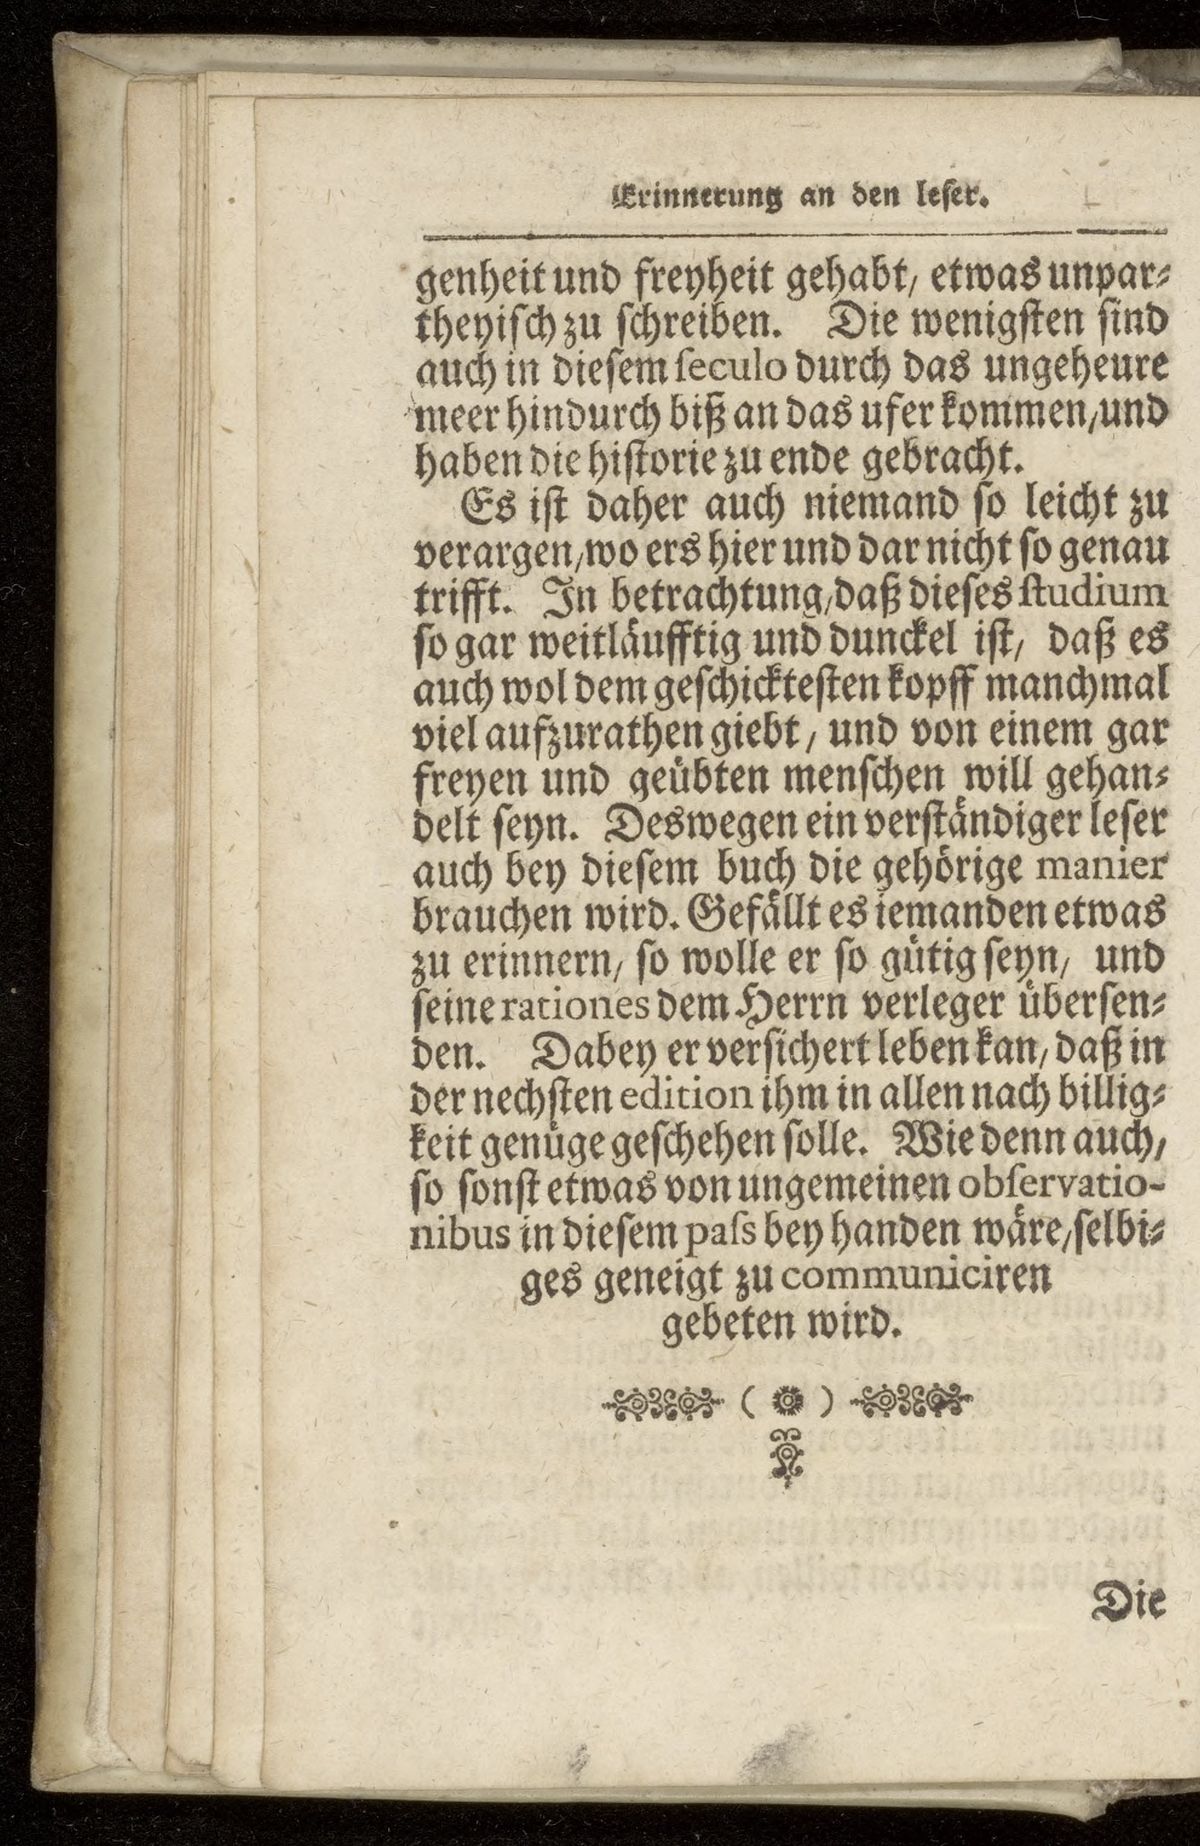 Erinnerung an den leſer.
genheit und freyheit gehabt, etwas unpar⸗
theyiſch zu ſchreiben. Die wenigſten ſind
auch in dieſem ſeculo durch das ungeheure
meer hindurch biß an das ufer kommen, und
haben die hiſtorie zu ende gebracht.
Es iſt daher auch niemand ſo leicht zu
verargen, wo ers hier und dar nicht ſo genau
trifft. In betrachtung, daß dieſes ſtudium
ſo gar weitläufftig und dunckel iſt, daß es
auch wol dem geſchickteſten kopff manchmal
viel aufzurathen giebt, und von einem gar
freyen und geübten menſchen will gehan⸗
delt ſeyn. Deswegen ein verſtändiger leſer
auch bey dieſem buch die gehörige manier
brauchen wird. Gefällt es iemanden etwas
zu erinnern, ſo wolle er ſo gütig ſeyn, und
ſeine rationes dem Herrn verleger überſen⸗
den. Dabey er verſichert leben kan, daß in
der nechſten edition ihm in allen nach billig⸗
keit genüge geſchehen ſolle. Wie denn auch,
ſo ſonſt etwas von ungemeinen obſervatio-
nibus in dieſem paſs bey handen wäre, ſelbi⸗
ges geneigt zu communiciren
gebeten wird.
Die